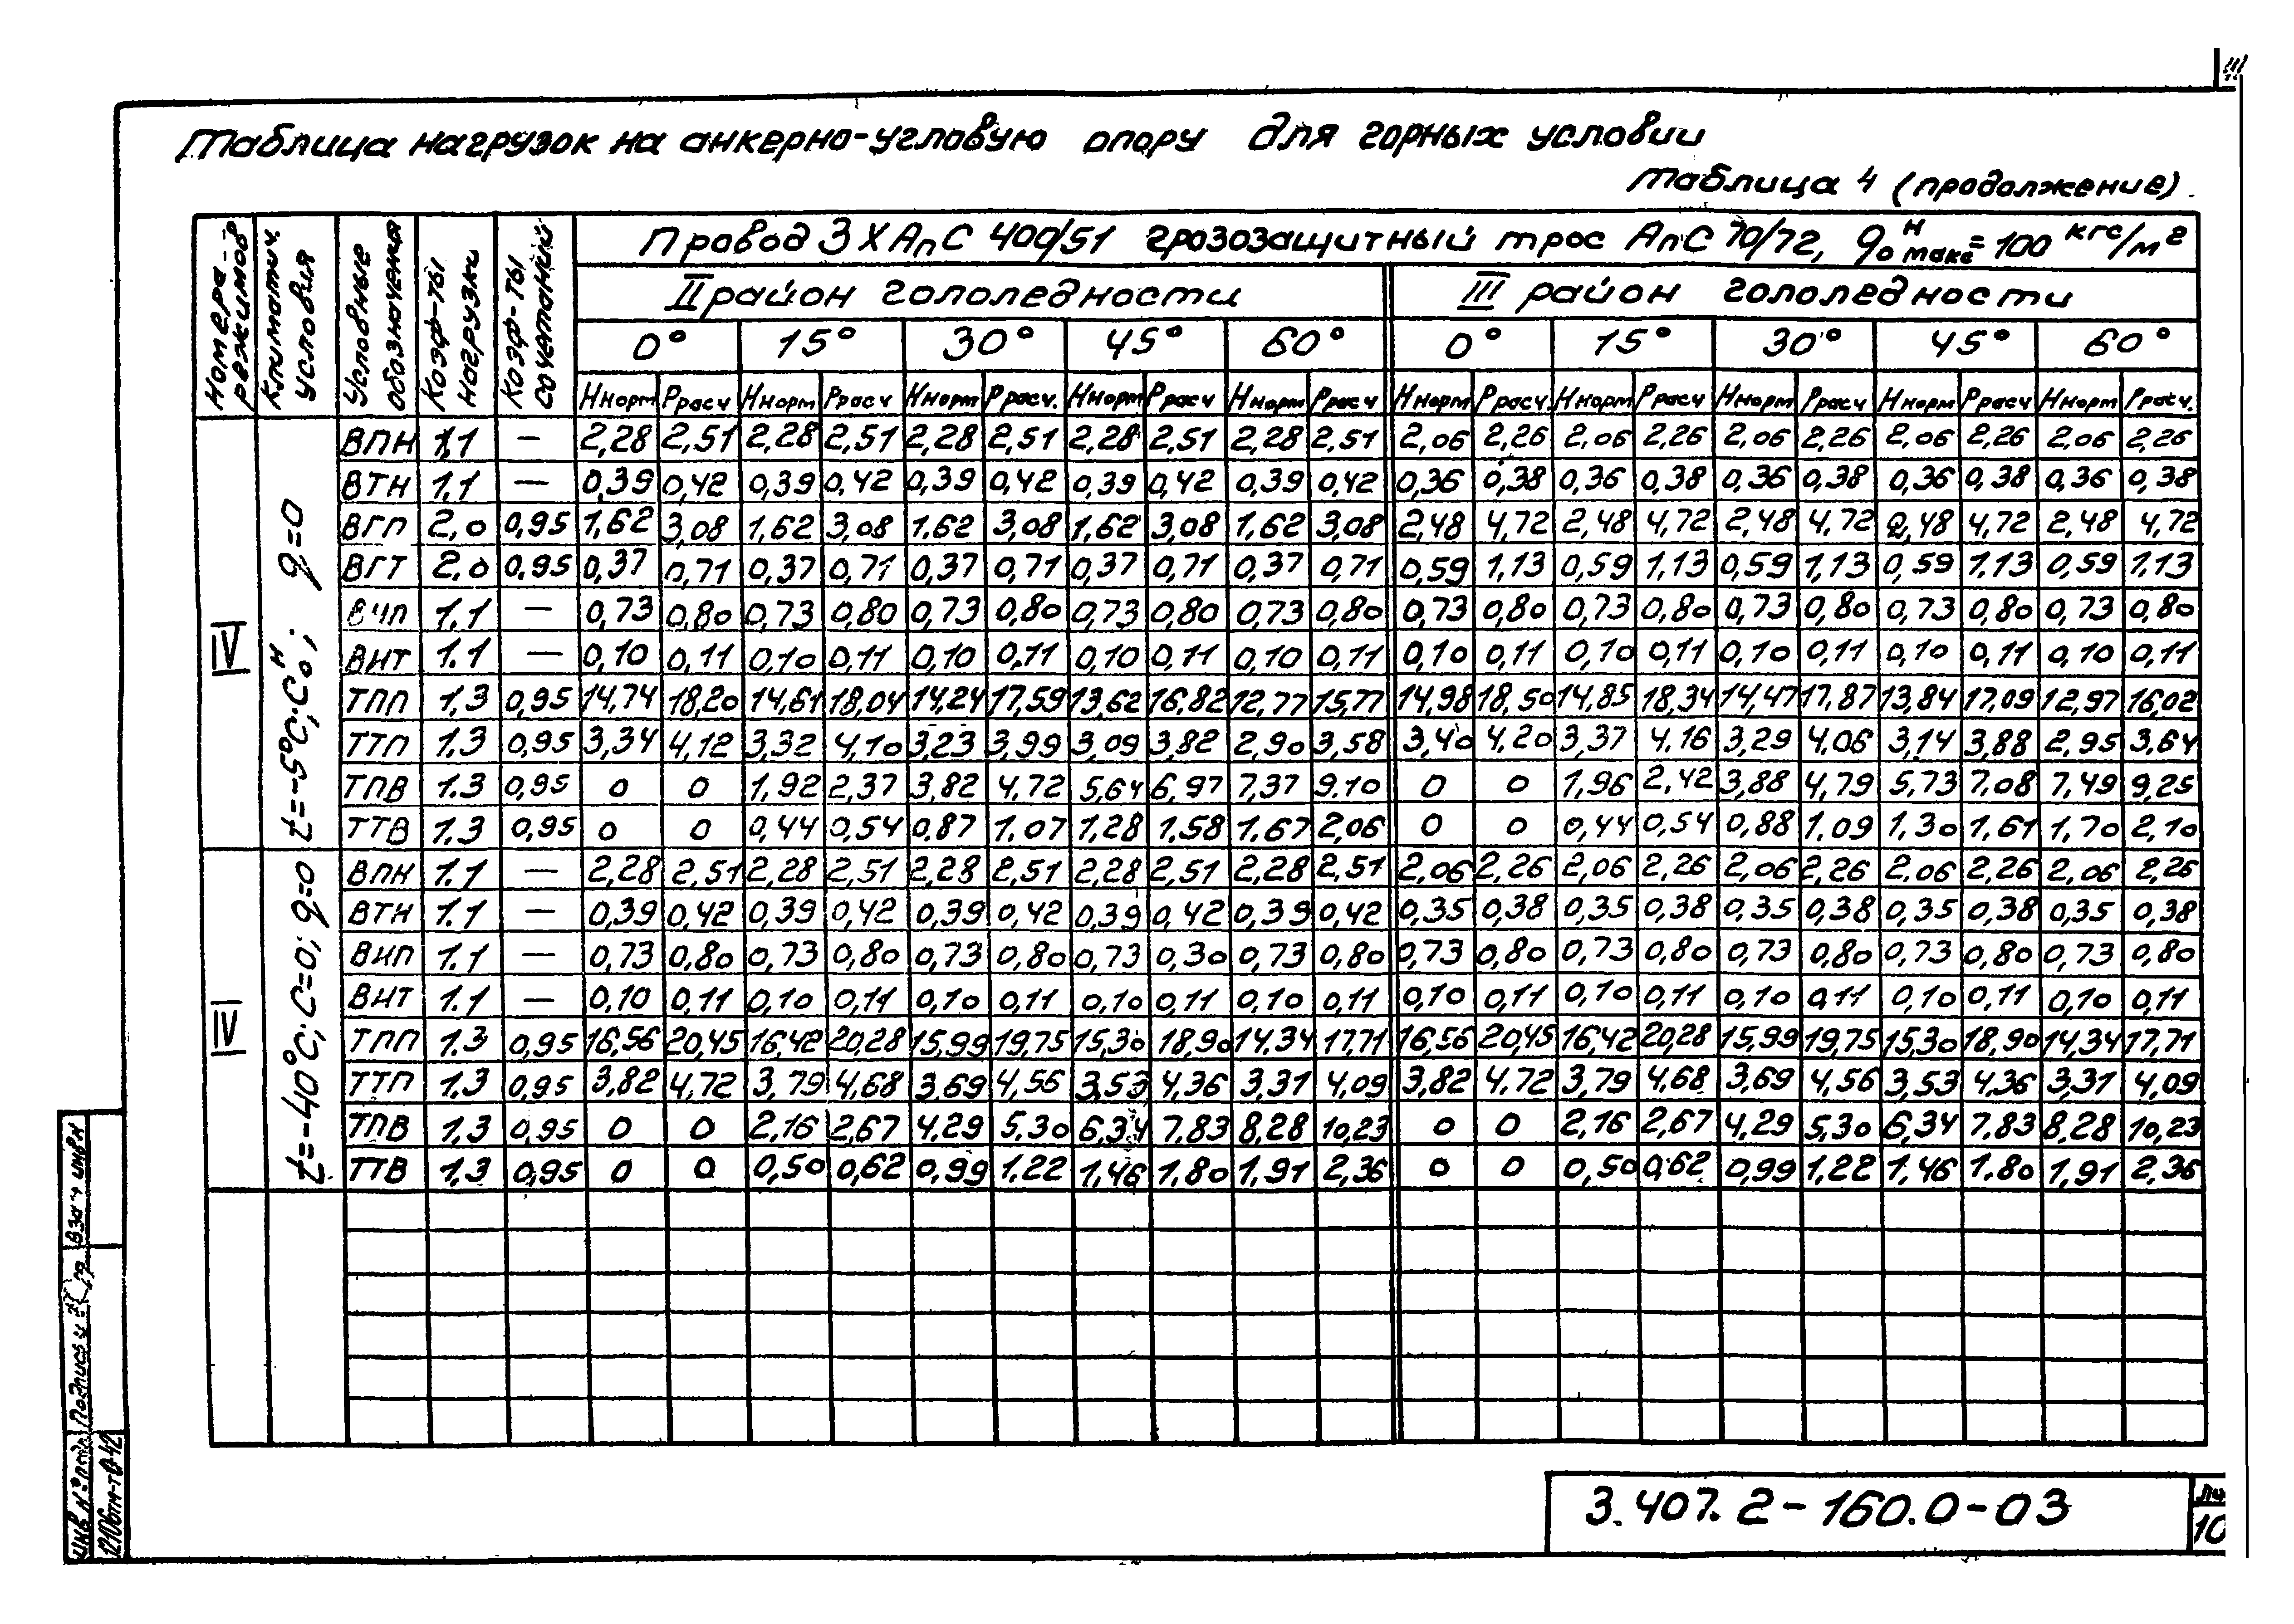 Таблица нагрузок на анкерно-угловую опору для горных условии
Таблица 4 (продолжение)
Номера режимов
Климатич. условия
Условные обозначения
Коэф-ты нагрузки
Коэф-ты сочетаний
Провод 3 X АпС 400/51 грозозащитный трос АпС 70/72, q₀ᴴ макс = 100 кгс/м²
II район гололедности III район гололедности
0° 15° 30° 45° 60° 0° 15° 30° 45° 60°
Ннорм Ррасч Ннорм Ррасч Ннорм Ррасч. Ннорм Ррасч Ннорм Ррасч Ннорм Ррасч. Ннорм Ррасч Ннорм Ррасч Ннорм Ррасч Ннорм Ррасч.
IV
t=-5°С; С₀ᴴ; q=0
ВПН 1.1 — 2,28 2,51 2,28 2,51 2,28 2,51 2,28 2,51 2,28 2,51 2,06 2,26 2,06 2,26 2,06 2,26 2,06 2,26 2,06 2,26
ВТН 1.1 — 0,39 0,42 0,39 0,42 0,39 0,42 0,39 0,42 0,39 0,42 0,36 0,38 0,36 0,38 0,36 0,38 0,36 0,38 0,36 0,38
ВГП 2,0 0,95 1,62 3,08 1,62 3,08 1,62 3,08 1,62 3,08 1,62 3,08 2,48 4,72 2,48 4,72 2,48 4,72 2,48 4,72 2,48 4,72
ВГТ 2,0 0,95 0,37 0,71 0,37 0,71 0,37 0,71 0,37 0,71 0,37 0,71 0,59 1,13 0,59 1,13 0,59 1,13 0,59 1,13 0,59 1,13
ВИП 1.1 — 0,73 0,80 0,73 0,80 0,73 0,80 0,73 0,80 0,73 0,80 0,73 0,80 0,73 0,80 0,73 0,80 0,73 0,80 0,73 0,80
ВИТ 1.1 — 0,10 0,11 0,10 0,11 0,10 0,11 0,10 0,11 0,10 0,11 0,10 0,11 0,10 0,11 0,10 0,11 0,10 0,11 0,10 0,11
ТПП 1.3 0,95 14,74 18,20 14,61 18,04 14,24 17,59 13,62 16,82 12,77 15,77 14,98 18,50 14,85 18,34 14,47 17,87 13,84 17,09 12,97 16,02
ТТП 1.3 0,95 3,34 4,12 3,32 4,10 3,23 3,99 3,09 3,82 2,90 3,58 3,40 4,20 3,37 4,16 3,29 4,06 3,14 3,88 2,95 3,64
ТПВ 1.3 0,95 0 0 1,92 2,37 3,82 4,72 5,64 6,97 7,37 9,10 0 0 1,96 2,42 3,88 4,79 5,73 7,08 7,49 9,25
ТТВ 1.3 0,95 0 0 0,44 0,54 0,87 1,07 1,28 1,58 1,67 2,06 0 0 0,44 0,54 0,88 1,09 1,30 1,61 1,70 2,10
IV
t=-40°С; С=0; q=0
ВПН 1.1 — 2,28 2,51 2,28 2,51 2,28 2,51 2,28 2,51 2,28 2,51 2,06 2,26 2,06 2,26 2,06 2,26 2,06 2,26 2,06 2,26
ВТН 1.1 — 0,39 0,42 0,39 0,42 0,39 0,42 0,39 0,42 0,39 0,42 0,35 0,38 0,35 0,38 0,35 0,38 0,35 0,38 0,35 0,38
ВИП 1.1 — 0,73 0,80 0,73 0,80 0,73 0,80 0,73 0,30 0,73 0,80 0,73 0,80 0,73 0,80 0,73 0,80 0,73 0,80 0,73 0,80
ВИТ 1.1 — 0,10 0,11 0,10 0,11 0,10 0,11 0,10 0,11 0,10 0,11 0,10 0,11 0,10 0,11 0,10 0,11 0,10 0,11 0,10 0,11
ТПП 1.3 0,95 16,56 20,45 16,42 20,28 15,99 19,75 15,30 18,90 14,34 17,71 16,56 20,45 16,42 20,28 15,99 19,75 15,30 18,90 14,34 17,71
ТТП 1.3 0,95 3,82 4,72 3,79 4,68 3,69 4,56 3,53 4,36 3,31 4,09 3,82 4,72 3,79 4,68 3,69 4,56 3,53 4,36 3,31 4,09
ТПВ 1.3 0,95 0 0 2,16 2,67 4,29 5,30 6,34 7,83 8,28 10,23 0 0 2,16 2,67 4,29 5,30 6,34 7,83 8,28 10,23
ТТВ 1.3 0,95 0 0 0,50 0,62 0,99 1,22 1,46 1,80 1,91 2,36 0 0 0,50 0,62 0,99 1,22 1,46 1,80 1,91 2,36
Инв № подл Подпись и Взам инв№
12106тм-т0-42
3.407.2-160.0-03
10